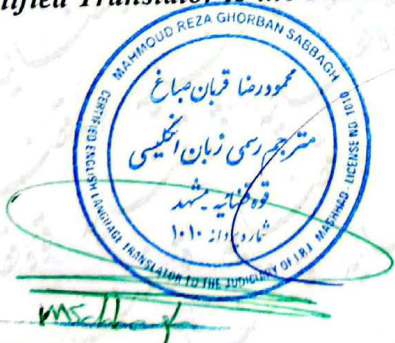 tified Translator
MAHMOUD REZA GHORBAN SABBAGH
CERTIFIED ENGLISH LANGUAGE TRANSLATOR TO THE JUDICIARY OF I.R.I. MASHHAD - LICENSE NO. 1010
محمودرضا قربان صباغ
مترجم رسمی زبان انگلیسی
قوه قضائیه مشهد
شماره پروانه ۱۰۱۰